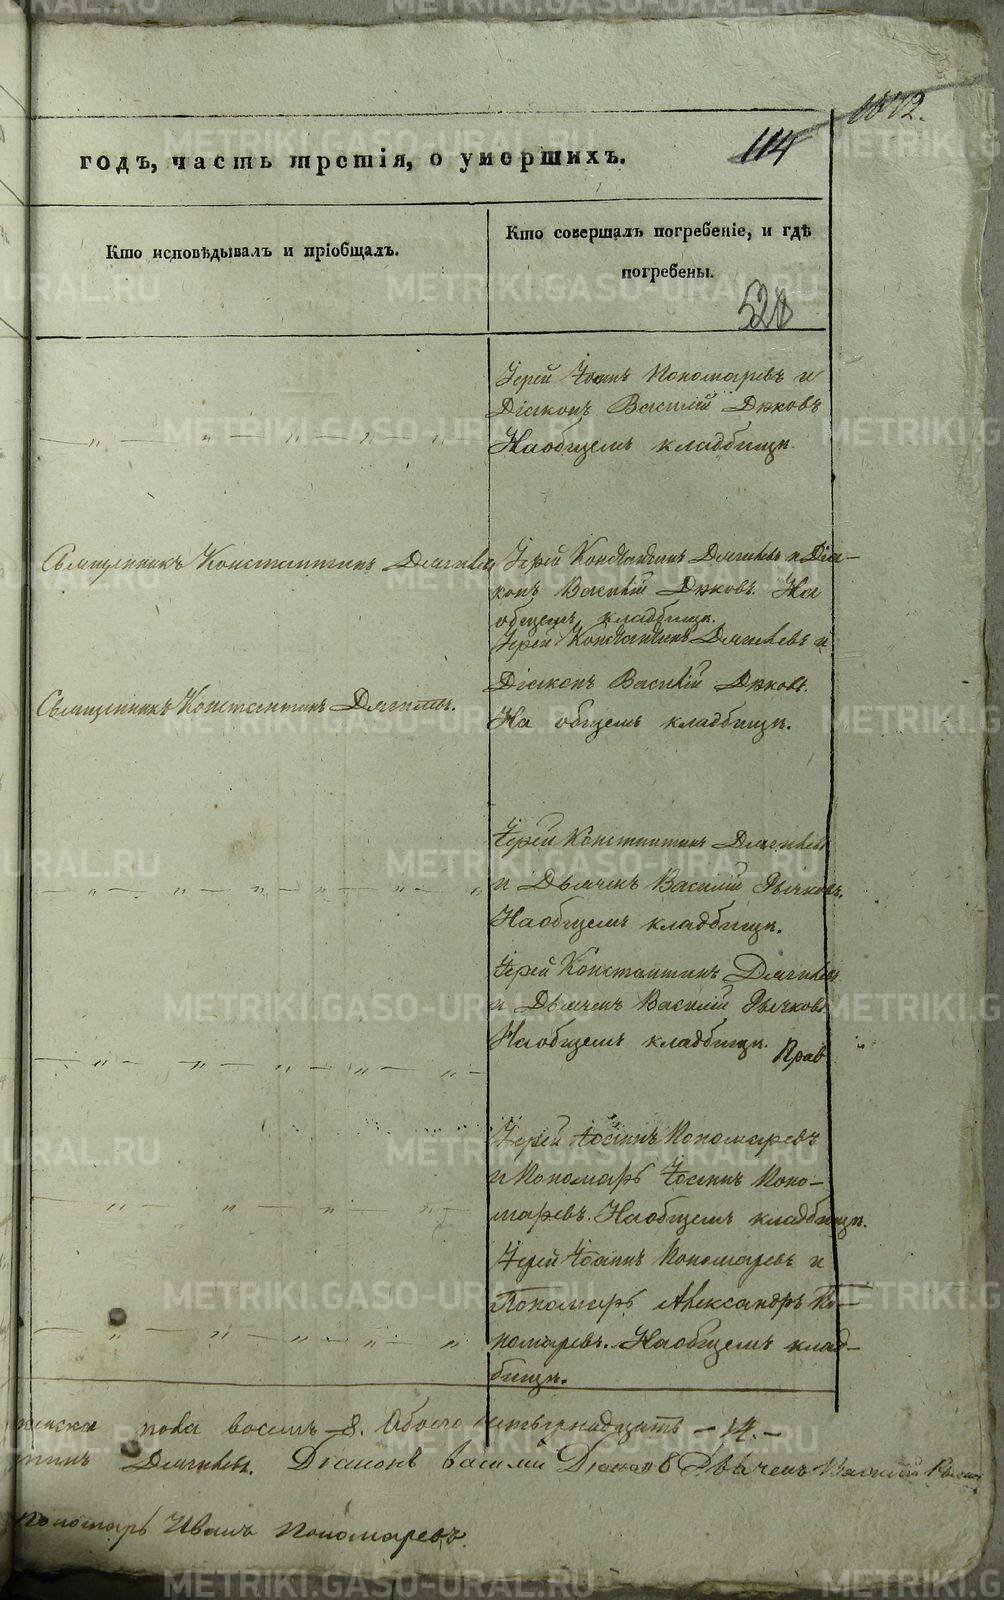 1872.
114
годъ, часть третія, о умершихъ.
Кто исповѣдывалъ и пріобщалъ.
Кто совершалъ погребеніе, и гдѣ
погребены.
528
Іерей Іоаннъ Пономаревъ и
Діаконъ Василій Дюковъ
На общемъ кладбищѣ.
Священникъ Константинъ Дягилевъ
Іерей Константинъ Дягилевъ и Діа-
конъ Василій Дюковъ. На
общемъ кладбищѣ.
Іерей Константинъ Дягилевъ и
Діаконъ Василій Дюковъ.
Священникъ Константинъ Дягилевъ.
На общемъ кладбищѣ.
Іерей Константинъ Дягилевъ
и Дьячекъ Василій Рычковъ.
На общемъ кладбищѣ.
Іерей Константинъ Дягилевъ
и Дьячекъ Василій Рычковъ.
На общемъ кладбищѣ.
Прав
Іерей Іоаннъ Пономаревъ
и Пономарь Іоаннъ Поно-
маревъ. На общемъ кладбищѣ.
Іерей Іоаннъ Пономаревъ и
Пономарь Александръ По-
номаревъ. На общемъ клад-
бищѣ.
женска пола восемь - 8. Обоего четырнадцать - 14. -
тинъ Дягилевъ. Діаконъ Василій Дюковъ Дьячекъ Василій
пономарь Иванъ Пономаревъ.
METRIKI.GASO-URAL.RU